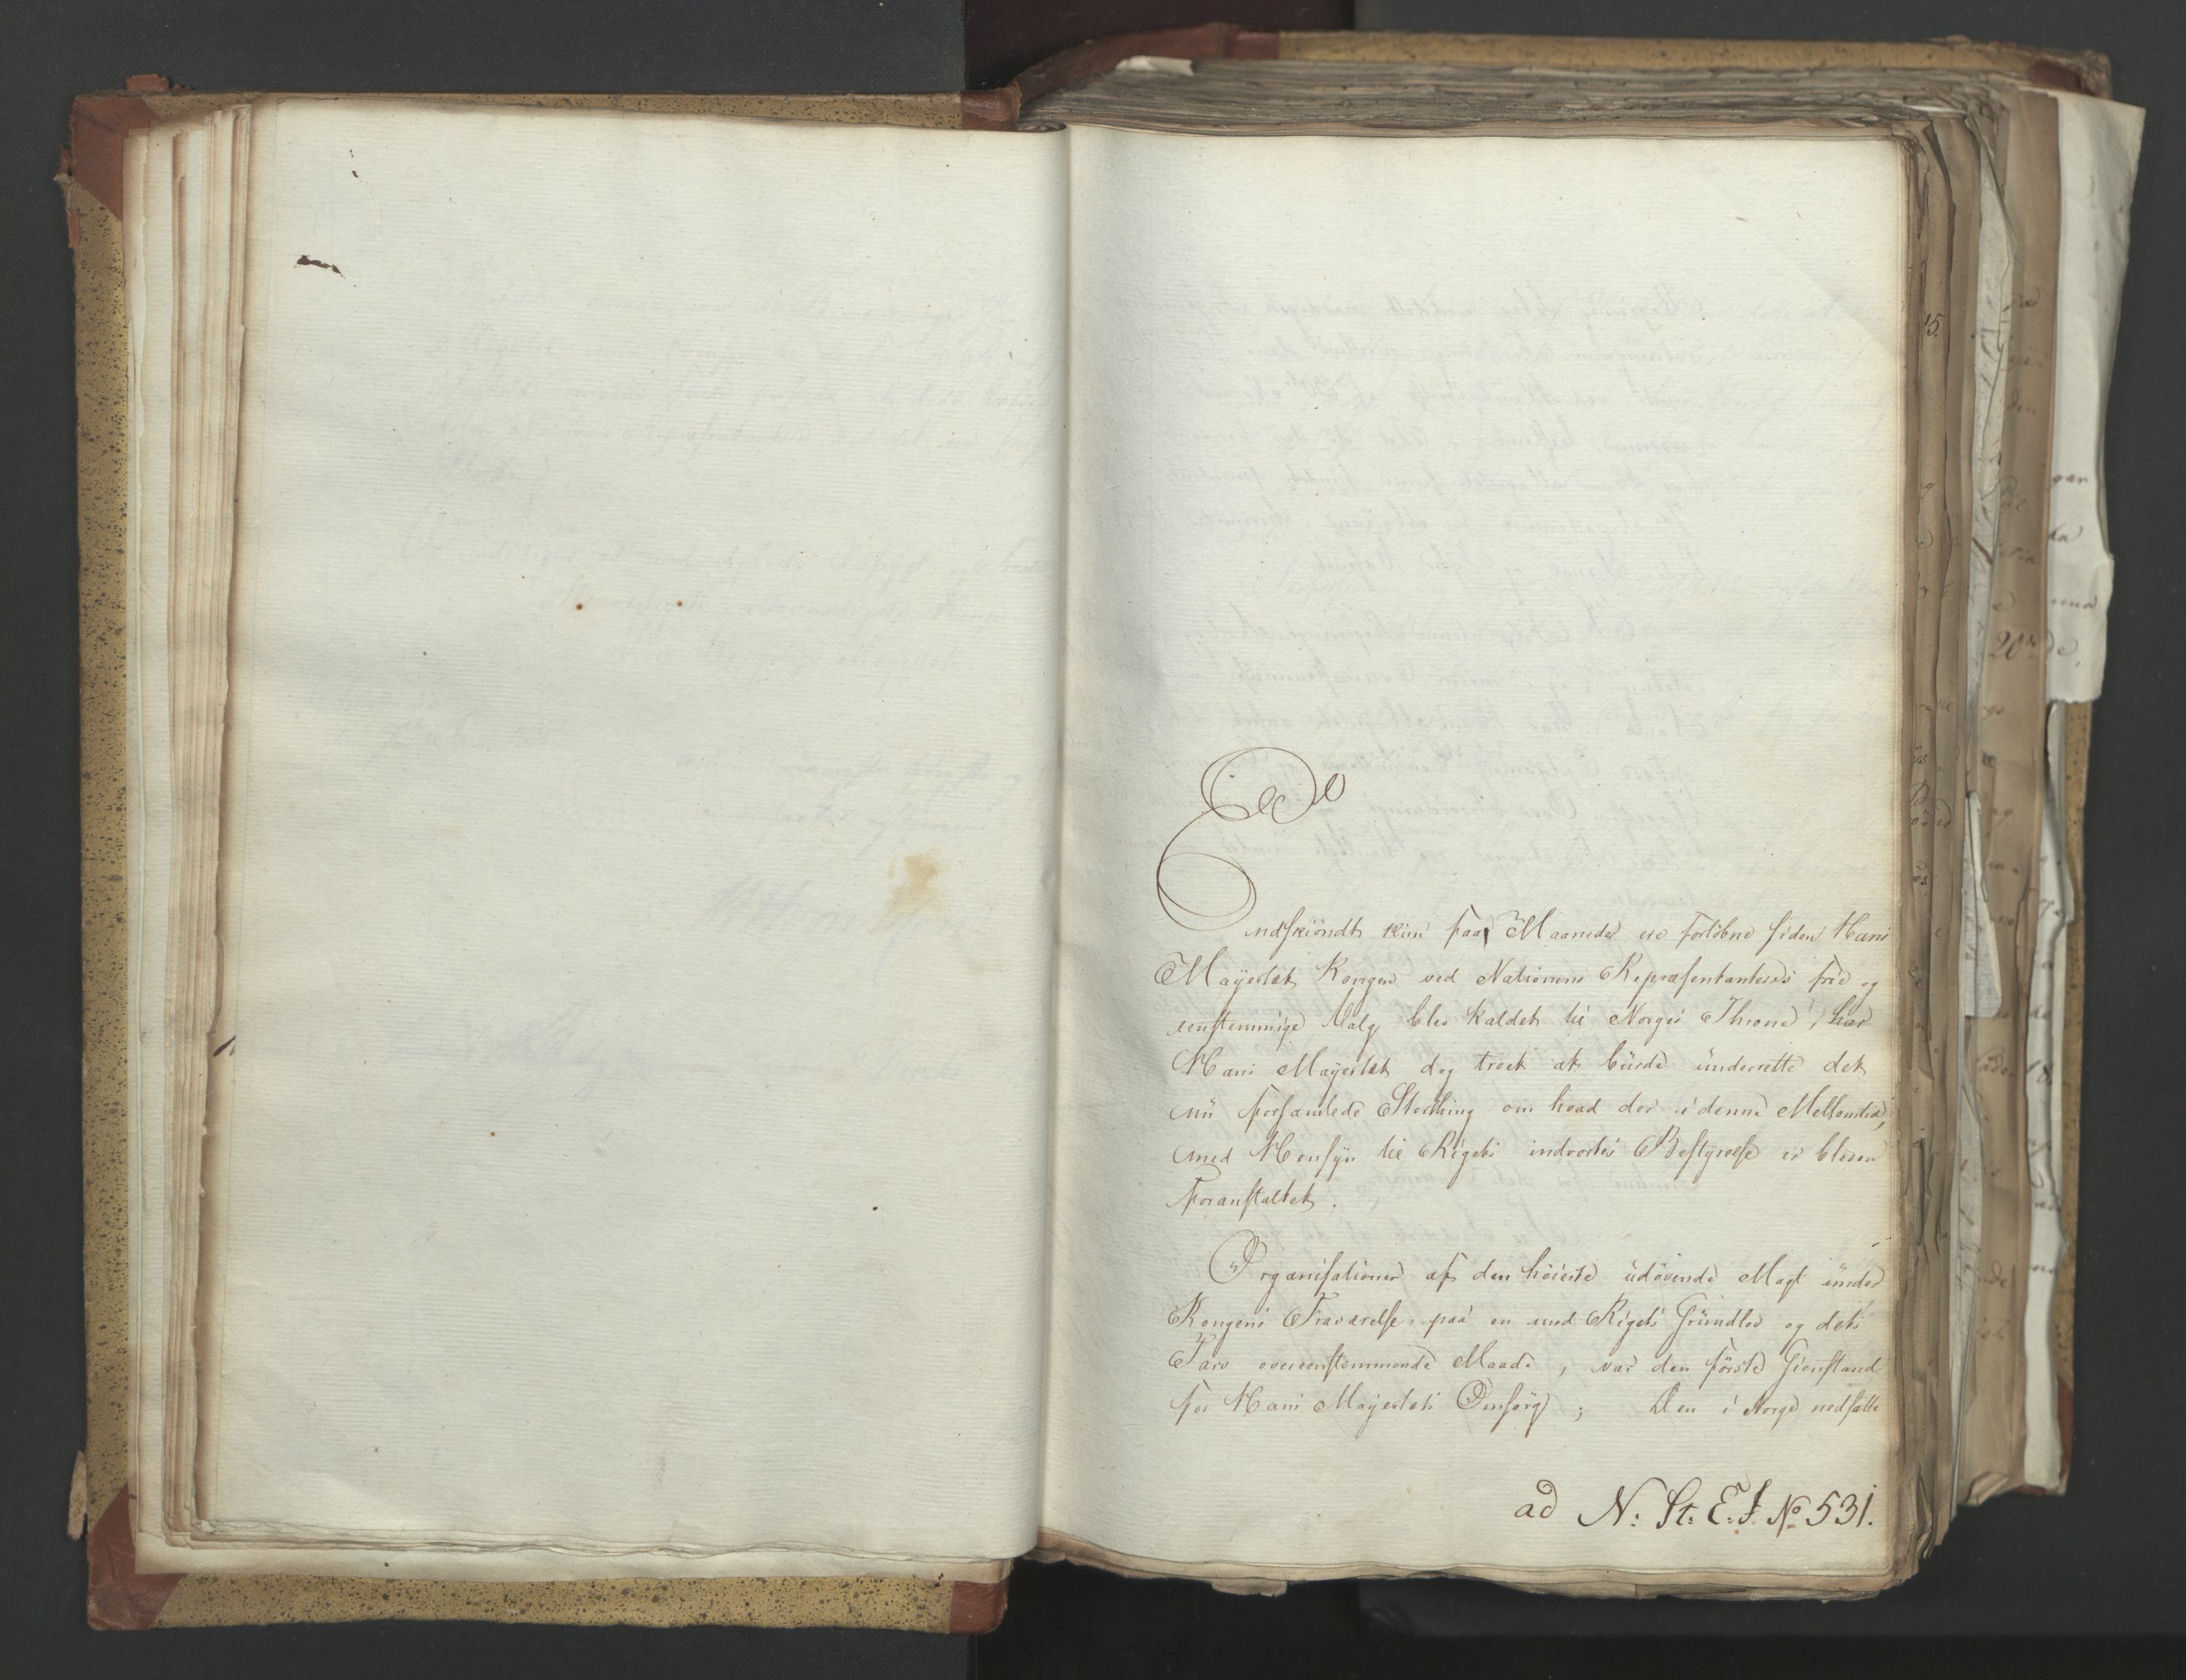 Endskiöndt kun faa Maaneder ere forløbne siden Hans
Majestæt Kongen ved Nationens Repræsentanteres frie og
eenstemmige Valg blev kaldet til Norges Throne, har
Hans Majestæt dog troet at burde underrette det
nu forsamlede Storthing om hvad der i denne Mellemtid,
med Hensyn til Rigets indvortes Bestyrelse er bleven
foranstaltet.
Organisationen af den høieste udøvende Magt under
Kongens Fraværelse, paa en med Rigets Grundlov og dets
Tarv overeenstemmende Maade, var den første Gienstand
for Hans Majestæts Omsorg; Den i Norge nedsatte
ad N: St: E: I No 531.